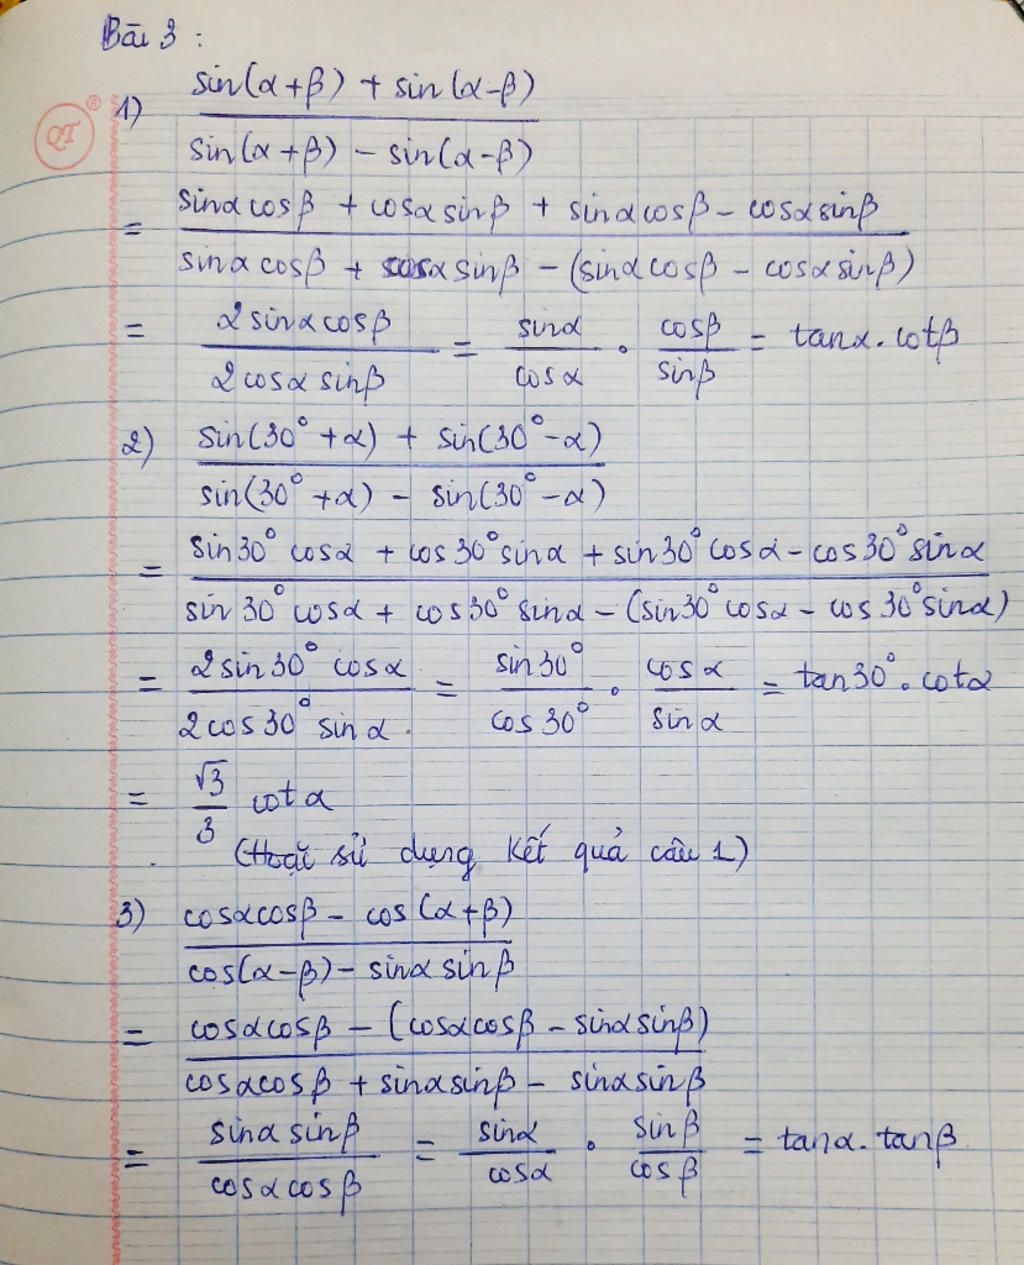 Bài 3 :
QT ®
1) sin(α+β) + sin(α-β)
sin(α+β) - sin(α-β)
= sinαcosβ + cosαsinβ + sinαcosβ - cosαsinβ
sinαcosβ + cosαsinβ - (sinαcosβ - cosαsinβ)
= 2sinαcosβ / 2cosαsinβ = sinα/cosα . cosβ/sinβ = tanα.cotβ
2) sin(30°+α) + sin(30°-α)
sin(30°+α) - sin(30°-α)
= sin30°cosα + cos30°sinα + sin30°cosα - cos30°sinα
sin30°cosα + cos30°sinα - (sin30°cosα - cos30°sinα)
= 2sin30°cosα / 2cos30°sinα = sin30°/cos30° . cosα/sinα = tan30°.cotα
= √3/3 cotα
(Hoặc sử dụng kết quả câu 1)
3) cosαcosβ - cos(α+β)
cos(α-β) - sinαsinβ
= cosαcosβ - (cosαcosβ - sinαsinβ)
cosαcosβ + sinαsinβ - sinαsinβ
= sinαsinβ / cosαcosβ = sinα/cosα . sinβ/cosβ = tanα.tanβ